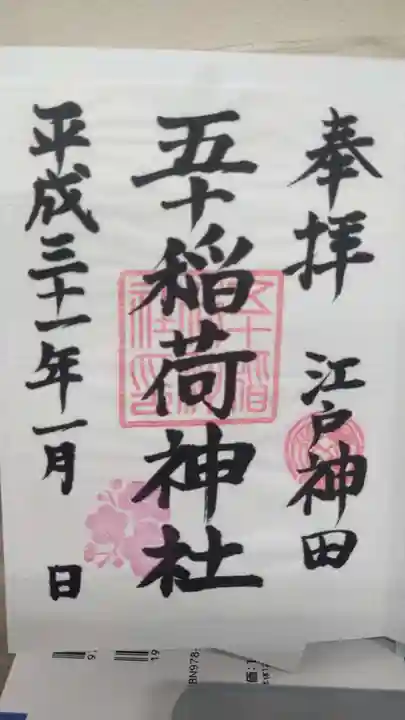 奉拝 江戸神田
五十稲荷神社
平成三十一年一月 日
BN978-